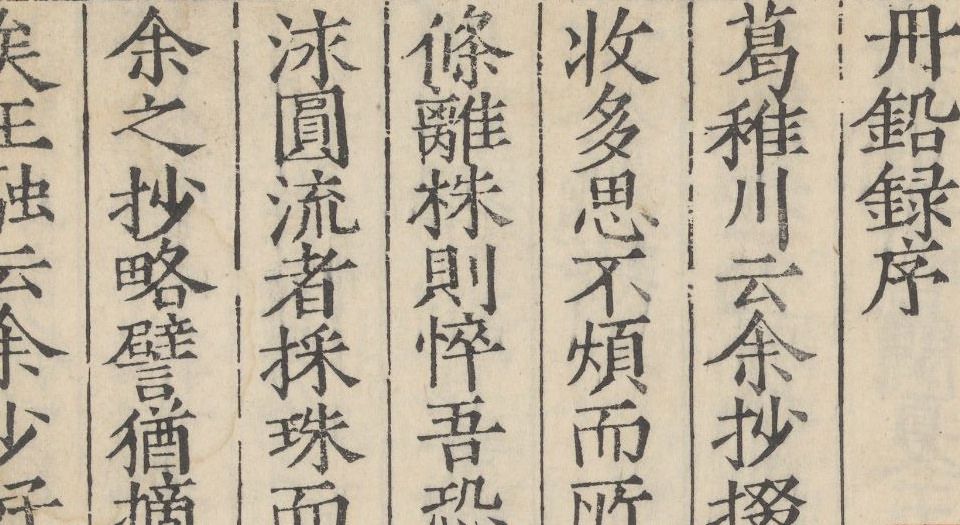 丹鉛録序
葛稚川云余抄掇
收多思不煩而所
條離株則悴吾恐
泳圓流者採珠而
余之抄略譬猶摘
王融云余少好